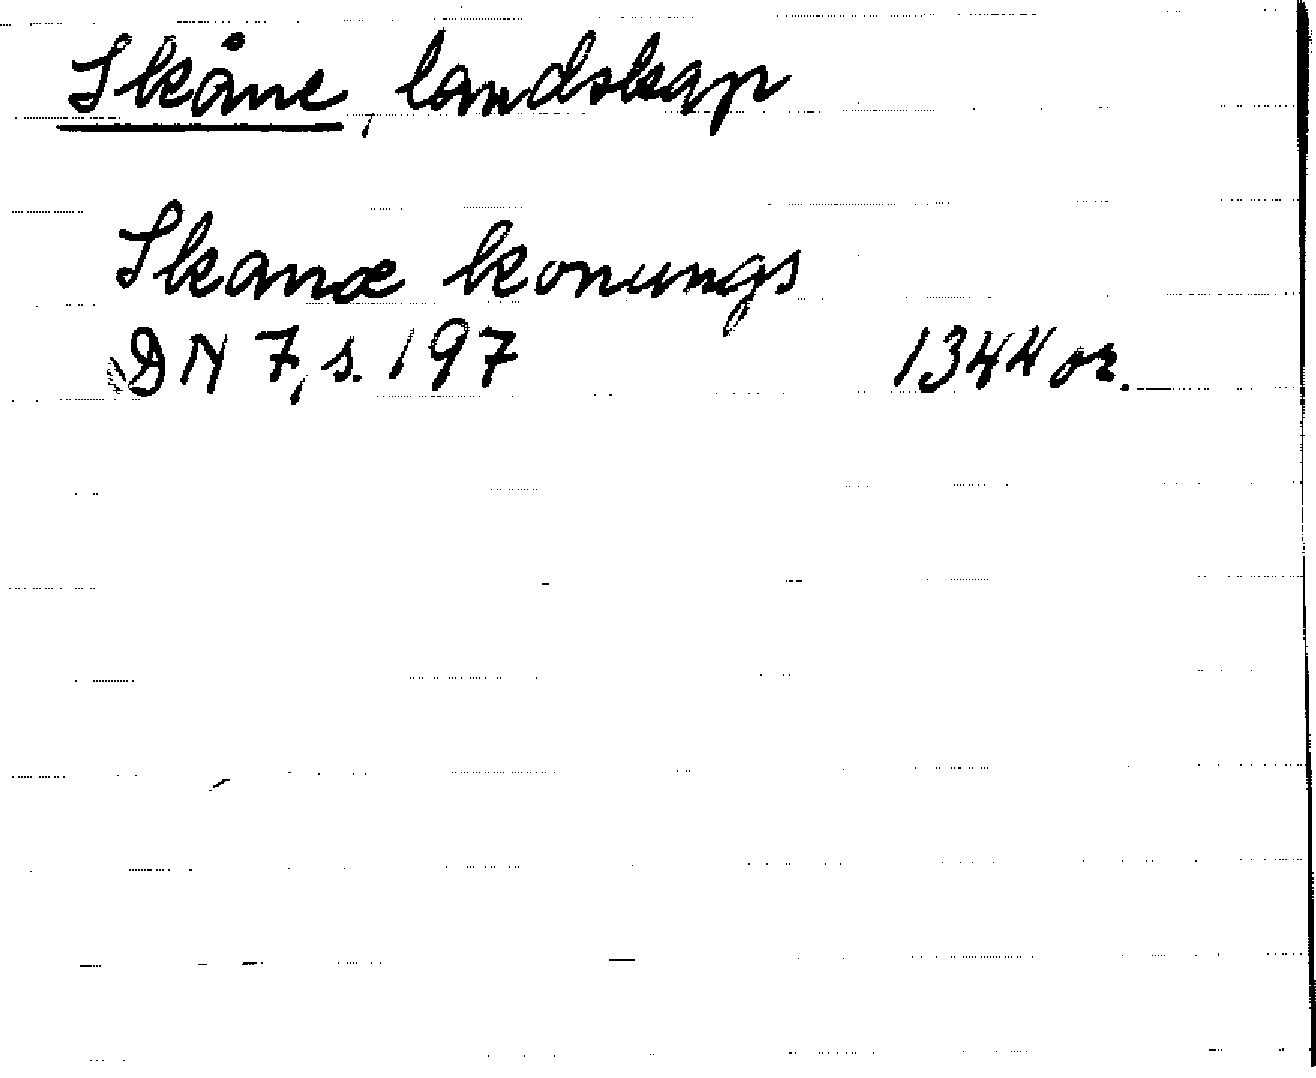 Skåne, landskap
Skanæ konungs
DN 7, s. 197 1344 or.